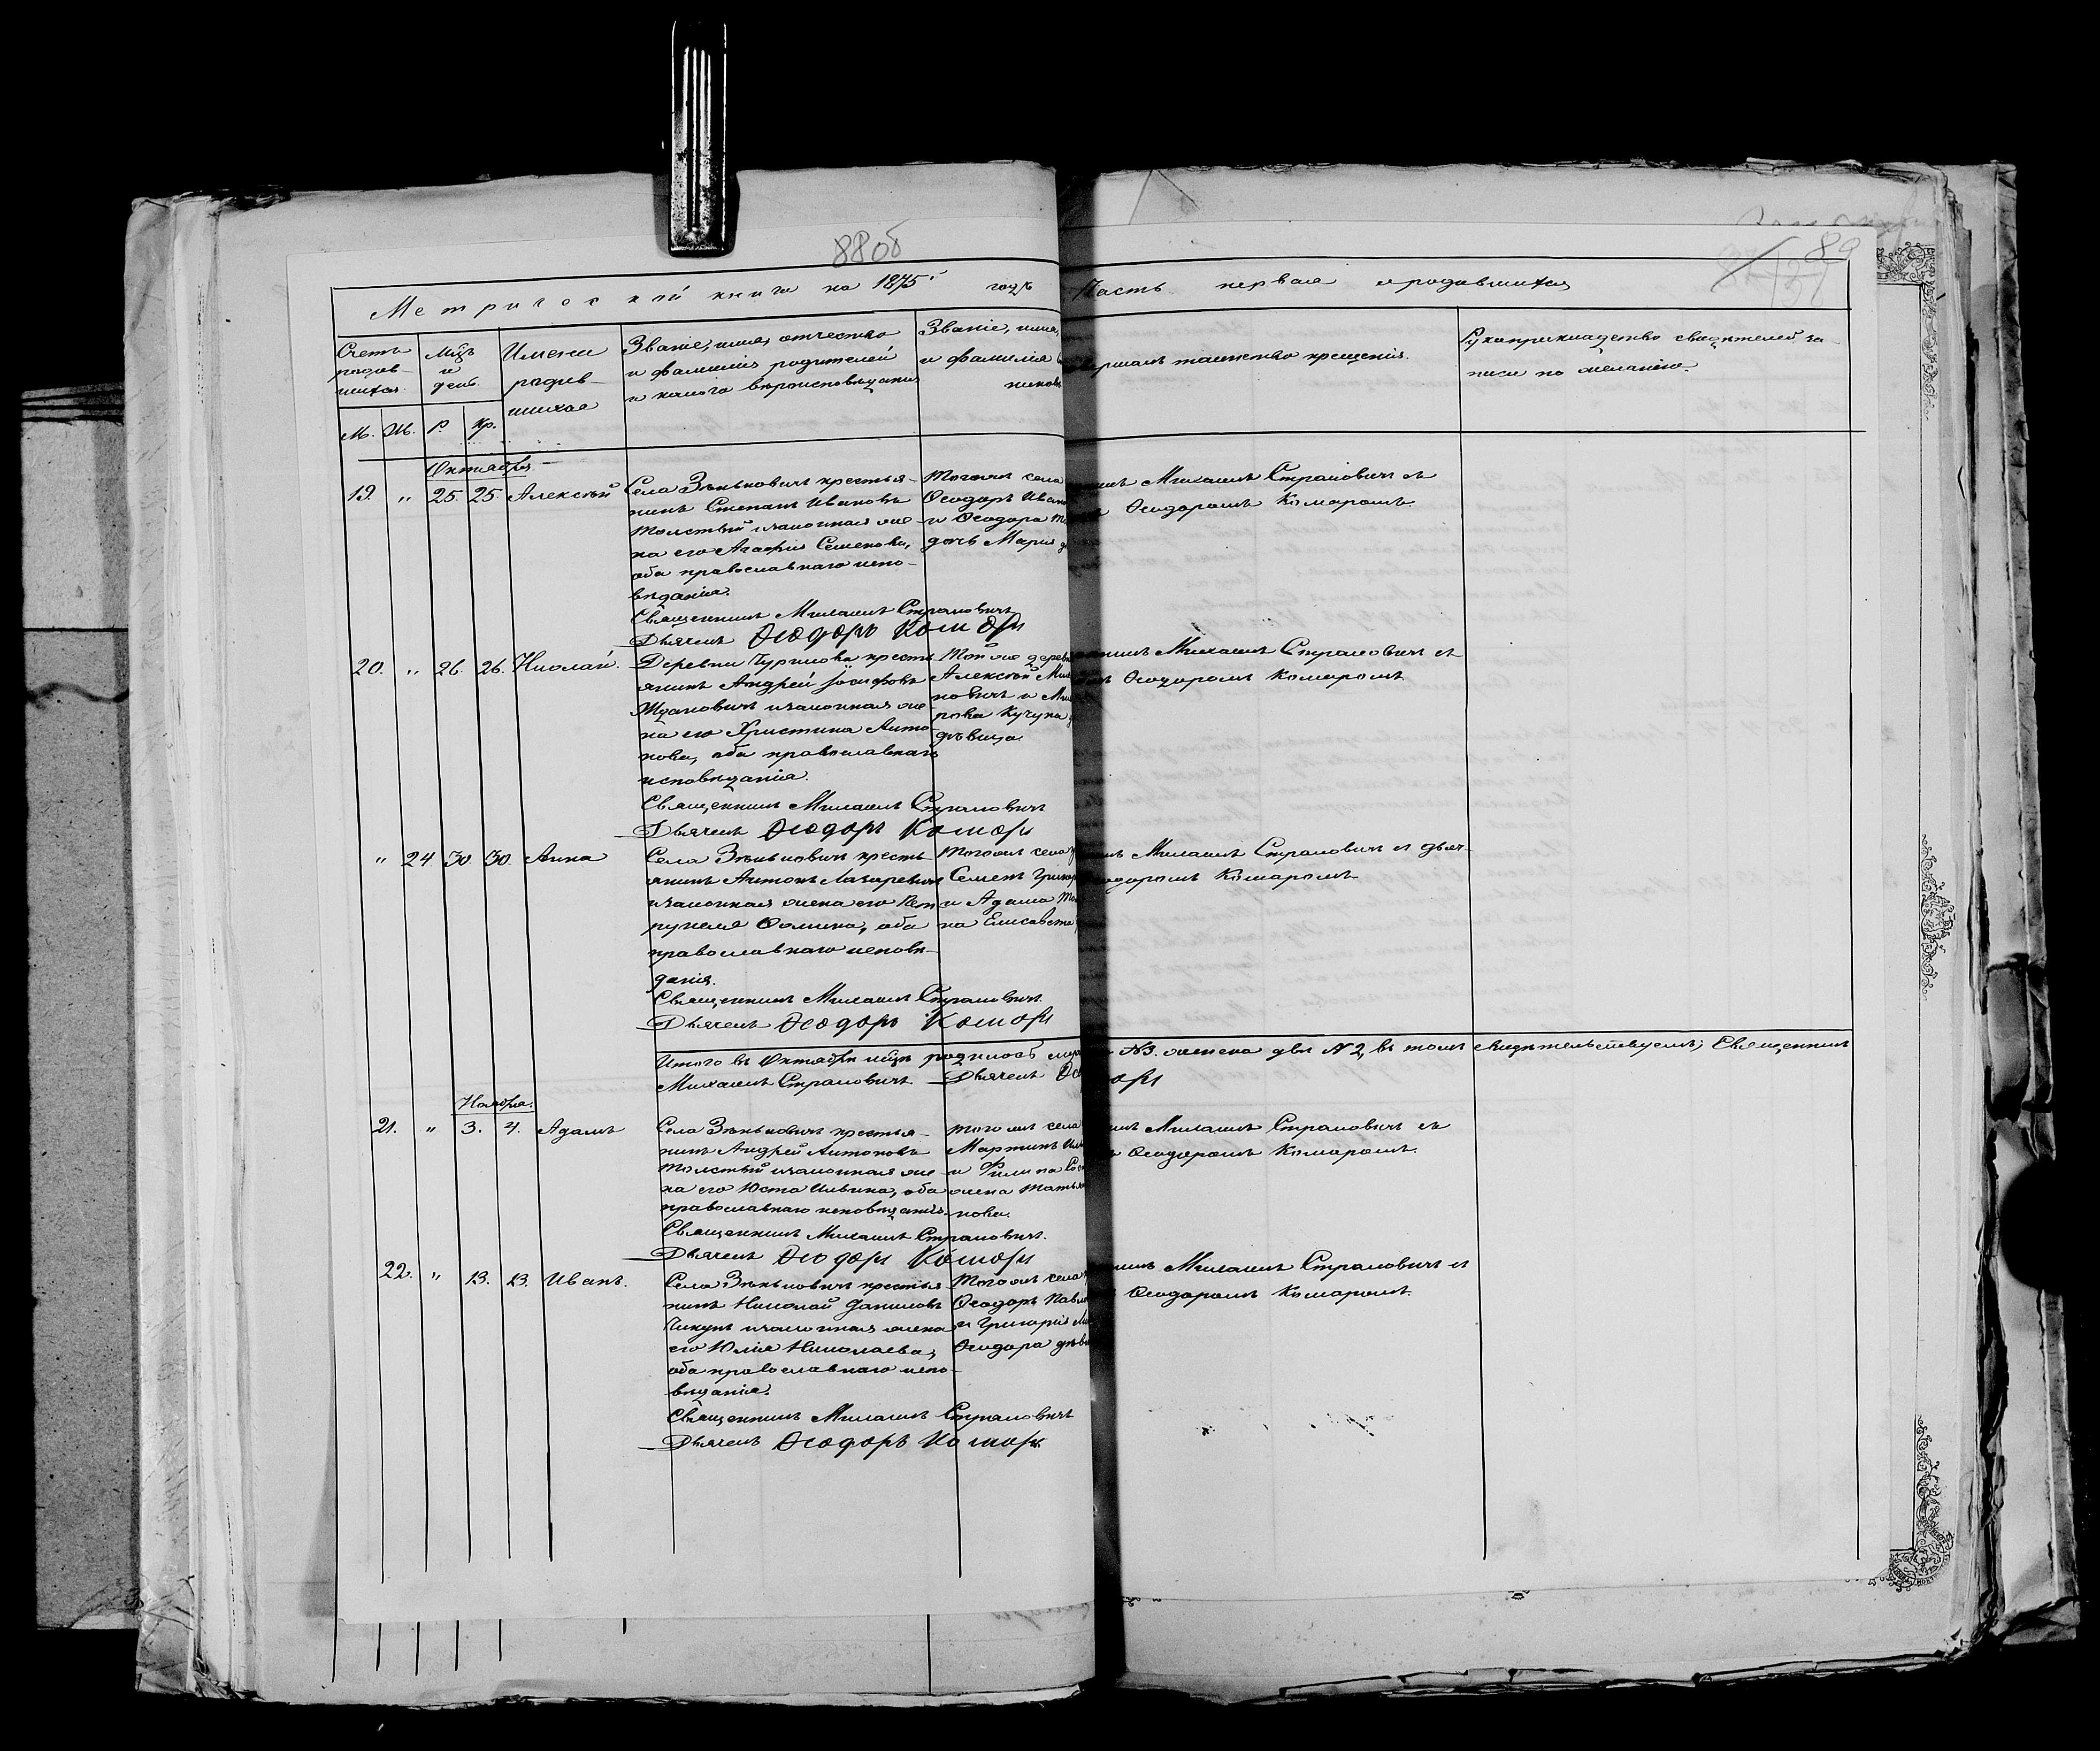 88 об
89
Метрической книги на 1875 й годъ
Часть первая о родившихся
Счетъ родив-шихся.
М. Ж.
Мцъ и день.
Р. Кр.
Имена родив-шихся
Званіе, имя, отчество
и фамилія родителей
и какого вѣроисповѣданія
Званіе, имя,
и фамилія
совершалъ таинство крещенія.
Рукоприкладство свидѣтелей за-
писи по желанію.
Октября
19. " 25. 25. Алексѣй
Села Зѣньковичъ крестья-
нинъ Стефанъ Ивановъ
Толстый и законная же-
на его Агафія Семенова,
оба православнаго испо-
вѣданія.
Священникъ Михаилъ Страковичъ
Дьячекъ Ѳеодоръ Комаръ
Того же села
Ѳеодоръ Иван
и Ѳеодора
дочь Марія
Михаилъ Страковичъ съ
Ѳеодоромъ Комаромъ.
20. " 26. 26. Николай.
Деревни крестья-
янинъ Андрей Іосифовъ
Ждановичъ и законная же-
на его Христина Анто-
нова, оба православнаго
исповѣданія.
Священникъ Михаилъ Страковичъ
Дьячекъ Ѳеодоръ Комаръ
Той же дерев
Алексѣй
новичъ и
рова Кучука
дѣвица.
Михаилъ Страковичъ съ
Ѳеодоромъ Комаромъ
" 24 30 30. Анна
Села Зѣньковичъ кресть-
янинъ Антонъ Лазаревичъ
и законная жена его Пет
рунеля Ѳомина, оба
православнаго исповѣ-
данія.
Священникъ Михаилъ Страковичъ.
Дьячекъ Ѳеодоръ Комаръ
Того же села
Семенъ Григор
и Адама
на Елисавета
Михаилъ Страковичъ съ дьяч-
Ѳеодоромъ Комаромъ
Итого въ Октябрѣ мцѣ родилось
№ 3. женска два № 2, въ томъ свидѣтельствуемъ; Священникъ
Михаилъ Страковичъ Дьячекъ
Ноября.
21. " 3. 4. Адамъ
Села Зѣньковичъ крестья-
нинъ Андрей Антоновъ
Толстый и законная же-
на его Юста Ильина, оба
православнаго исповѣданія.
Священникъ Михаилъ Страковичъ.
Дьячекъ Ѳеодоръ Комаръ
Того же села
Мартинъ
и Филипа
жена Татья
нова.
Михаилъ Страковичъ съ
Ѳеодоромъ Комаромъ.
22. " 13. 13. Иванъ.
Села Зѣньковичъ крестья
нинъ Николай Даниловъ
Чикунъ и законная жена
его Юлія Николаева,
оба православнаго испо-
вѣданія.
Священникъ Михаилъ Страковичъ
Дьячекъ Ѳеодоръ Комаръ
Того же села
Ѳеодоръ Павл
и Григорія
Ѳеодора дѣви
Михаилъ Страковичъ съ
Ѳеодоромъ Комаромъ.